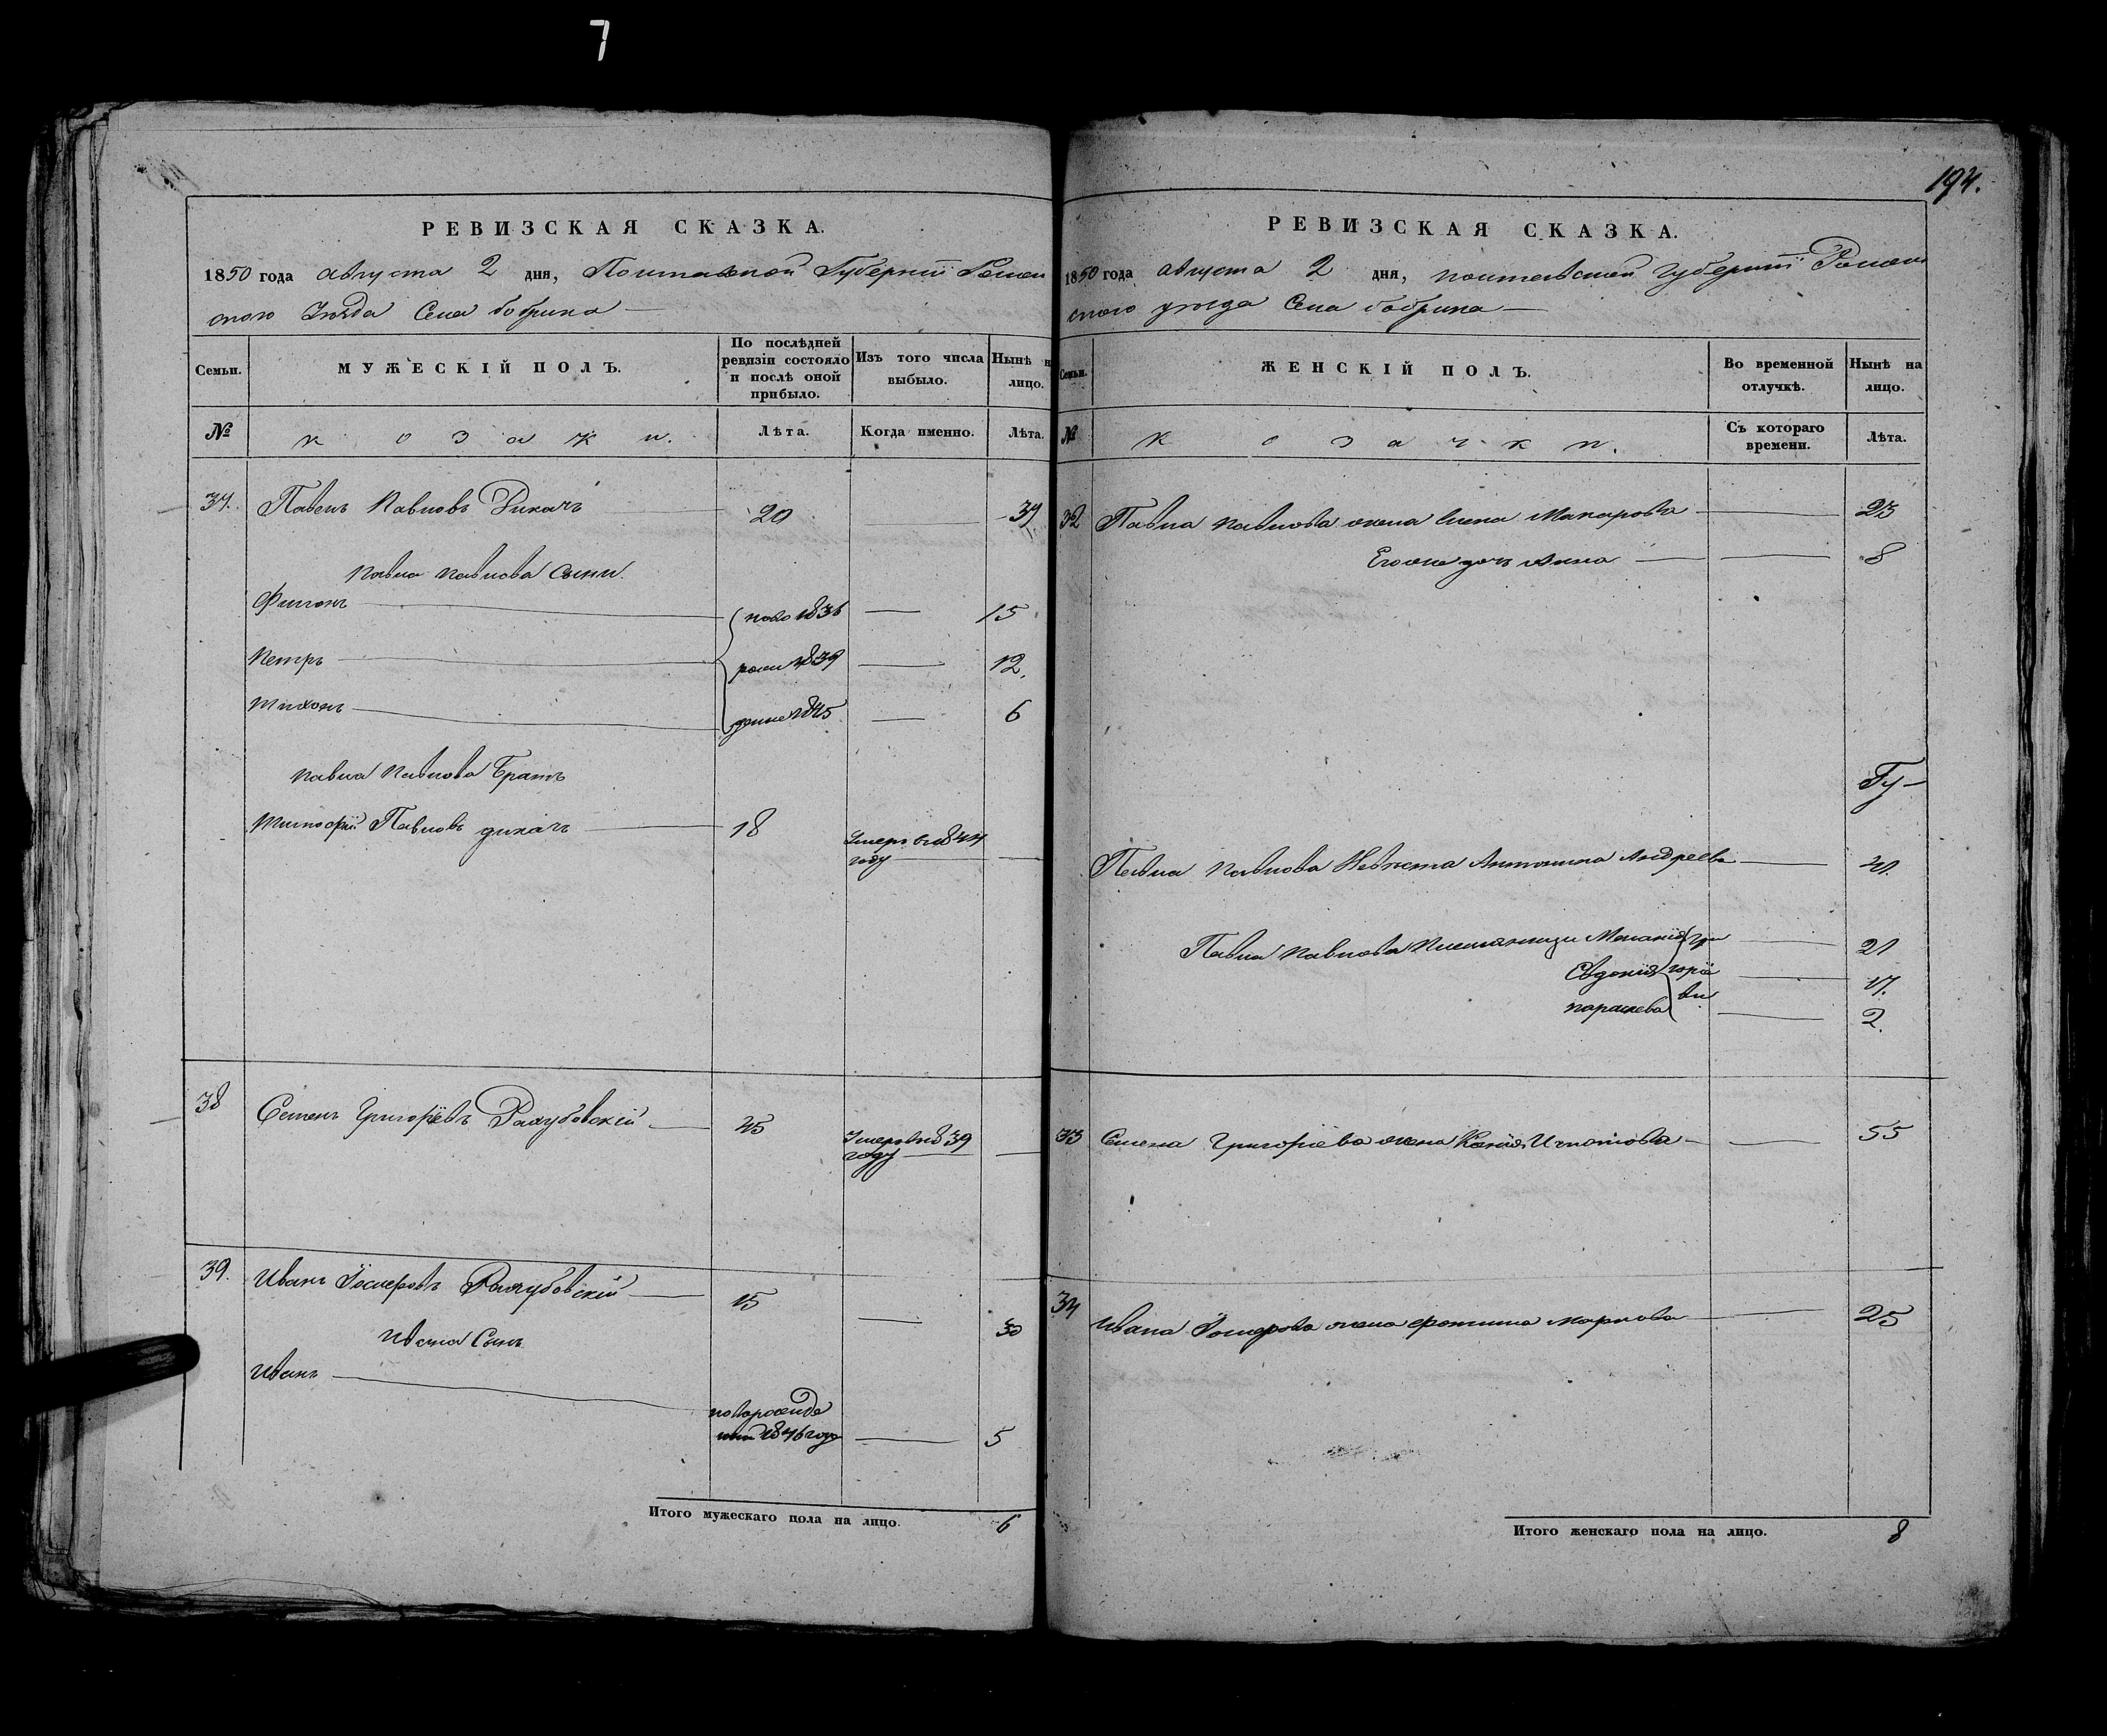 7
РЕВИЗСКАЯ СКАЗКА.
1850 года августа 2 дня, Полтавской Губерніи Ромен
ского Уѣзда Села бобрика
Семьи.
МУЖЕСКІЙ ПОЛЪ.
По послѣдней ревизіи состояло и послѣ оной прибыло.
Изъ того числа выбыло.
Нынѣ н лицо.
№
козаки.
Лѣта.
Когда именно.
Лѣта.
37. Павелъ Павловъ Дикачъ 20 37
Павла Павлова Сыны.
Филонъ ново 1836 15
Петръ рожд 1839 12.
Тихонъ 1845 6
Павла Павлова Братъ
Тимофей Павловъ дикачъ 18 Умеръ в 1844
году
38 Семенъ Григоріевъ 45 Умеръ в 1839
году
39. Иванъ 15 30
Ивана Сынъ
Иванъ новорожде
ный 1846 года 5
Итого мужескаго пола на лицо. 6
194.
РЕВИЗСКАЯ СКАЗКА.
1850 года августа 2 дня, полтавской губерніи Ромен
ского уѣзда Села бобрика
Семьи.
ЖЕНСКІЙ ПОЛЪ.
Во временной отлучкѣ.
Нынѣ на лицо.
№
козачки.
Съ котораго времени.
Лѣта.
32 Павла Павлова жена Елена Макарова 23
Его же дочь Анна 8
Павла Павлова Невѣстка Антонина Андреева
Павла Павлова племянницы Меланія гри 21
Евдокія горіе 17.
параскева вы 2.
33 Семена Григоріева жена Ксенія Игнатова 55
34 Ивана жена Маркова 25
Итого женскаго пола на лицо. 8